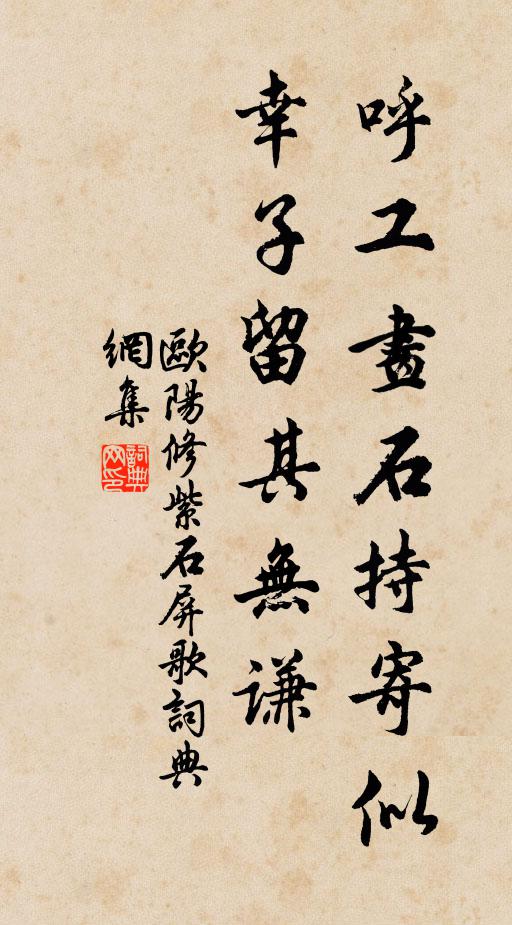 呼工畫石持寄似
幸子留其無謙
歐陽修紫石屏歌詞典
網集
詞典
网印